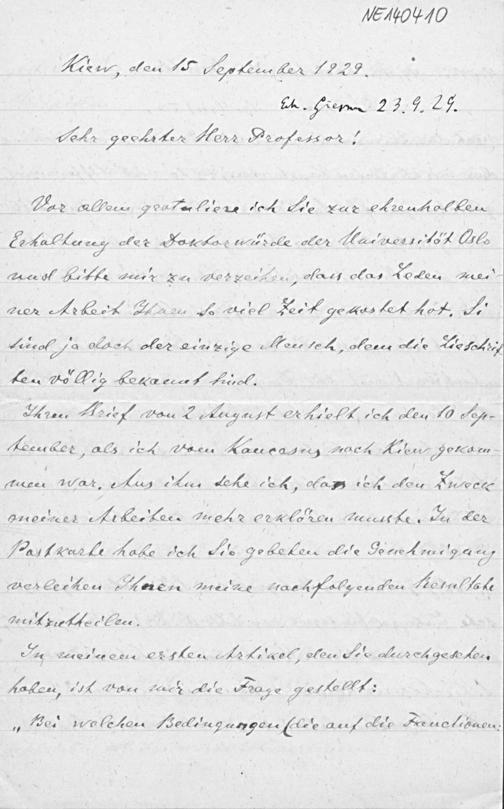 NE140410
Kiew, den 15 September 1929.
23.9.29.
Sehr geehrter Herr Professor!
Vor allem gratuliere ich Sie zur ehrenhalben
Erhaltung der Doktorwürde der Universität Oslo
und bitte mir zu verzeihen, dass das Leden mei-
ner Arbeit Ihnen so viel Zeit gekostet hat. Si
sind ja doch der einzige Mensch, dem die Lieschrif
ten völlig bekannt sind.
Ihren Brief von 2 August erhielt ich den 10 Sep-
tember, als ich vom Kaucasus nach Kiew gekom-
men war. Aus ihm sehe ich, dass ich den Zweck
meiner Arbeiten mehr erklären musste. In der
Postkarte habe ich Sie gebeten die Genehmigung
verleihen Ihnen meine nachfolgenden Resultate
mitzutheilen.
In meinem ersten Artikel, den Sie durchgesehen
haben, ist von mir die Frage gestellt:
„Bei welchen Bedingungen (die auf die Functionen